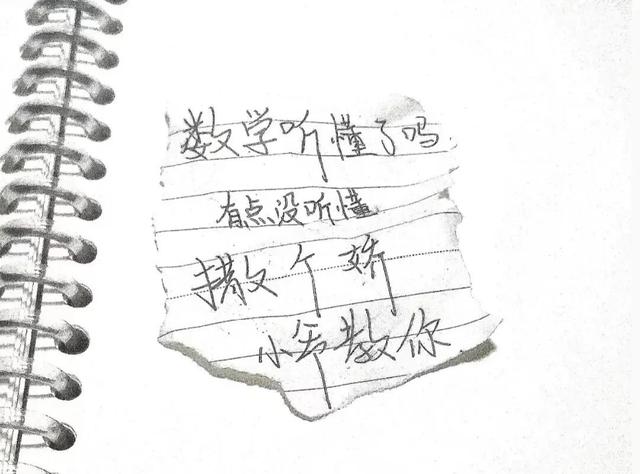 数学听懂了吗
有点没听懂
撒个娇
小爷教你